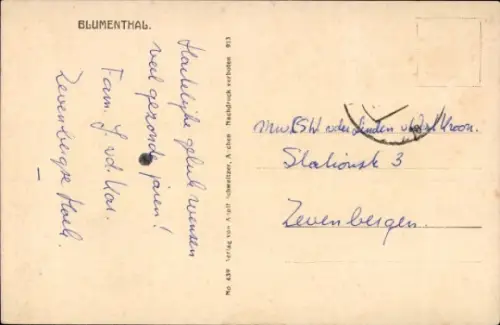 BLUMENTHAL.
Hartelijke gelukwensen
veel gezonde jaren!
Fam. J. v.d. Kar.
Zevenbergse Hoek.
No 439 Verlag von Schweitzer, Aachen Nachdruck verboten 913
v/d Linden
Stationsk 3
Zevenbergen.